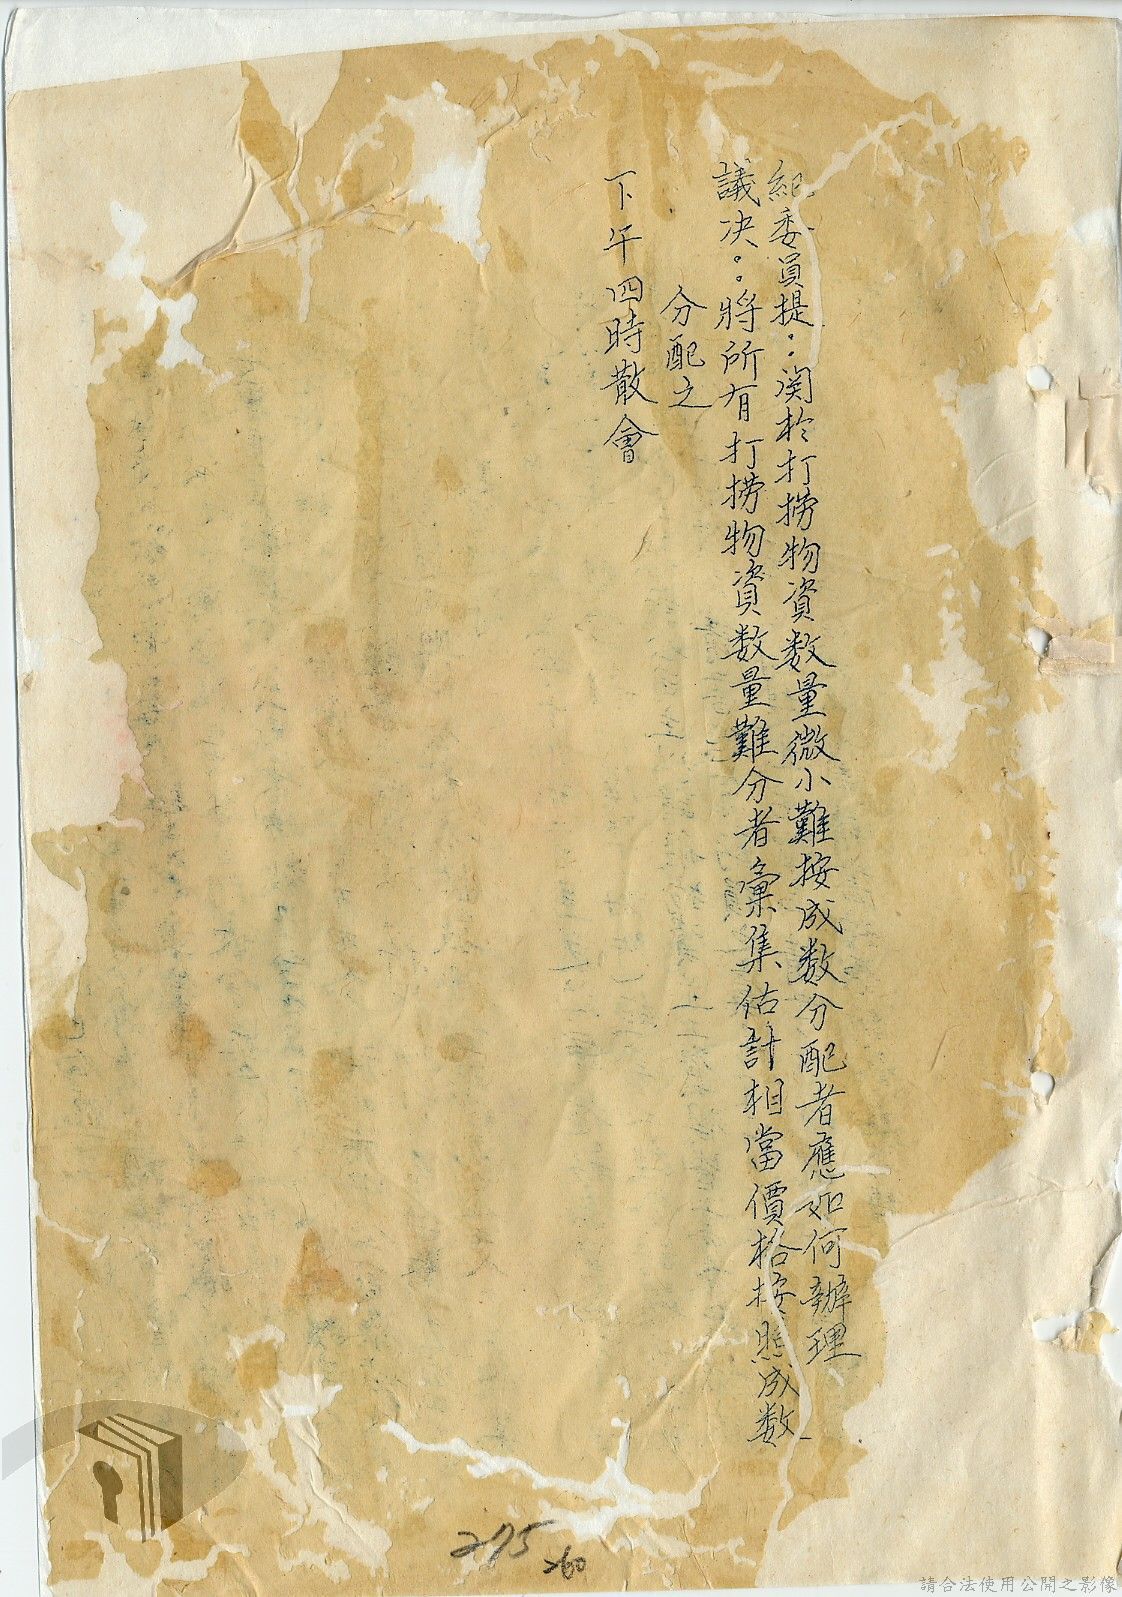 紀委員提：関於打撈物資数量微小難按成数分配者應如何辦理
議决：將所有打撈物資数量難分者彙集估計相當價格按照成数
分配之
下午四時散會
275
260
請合法使用公開之影像